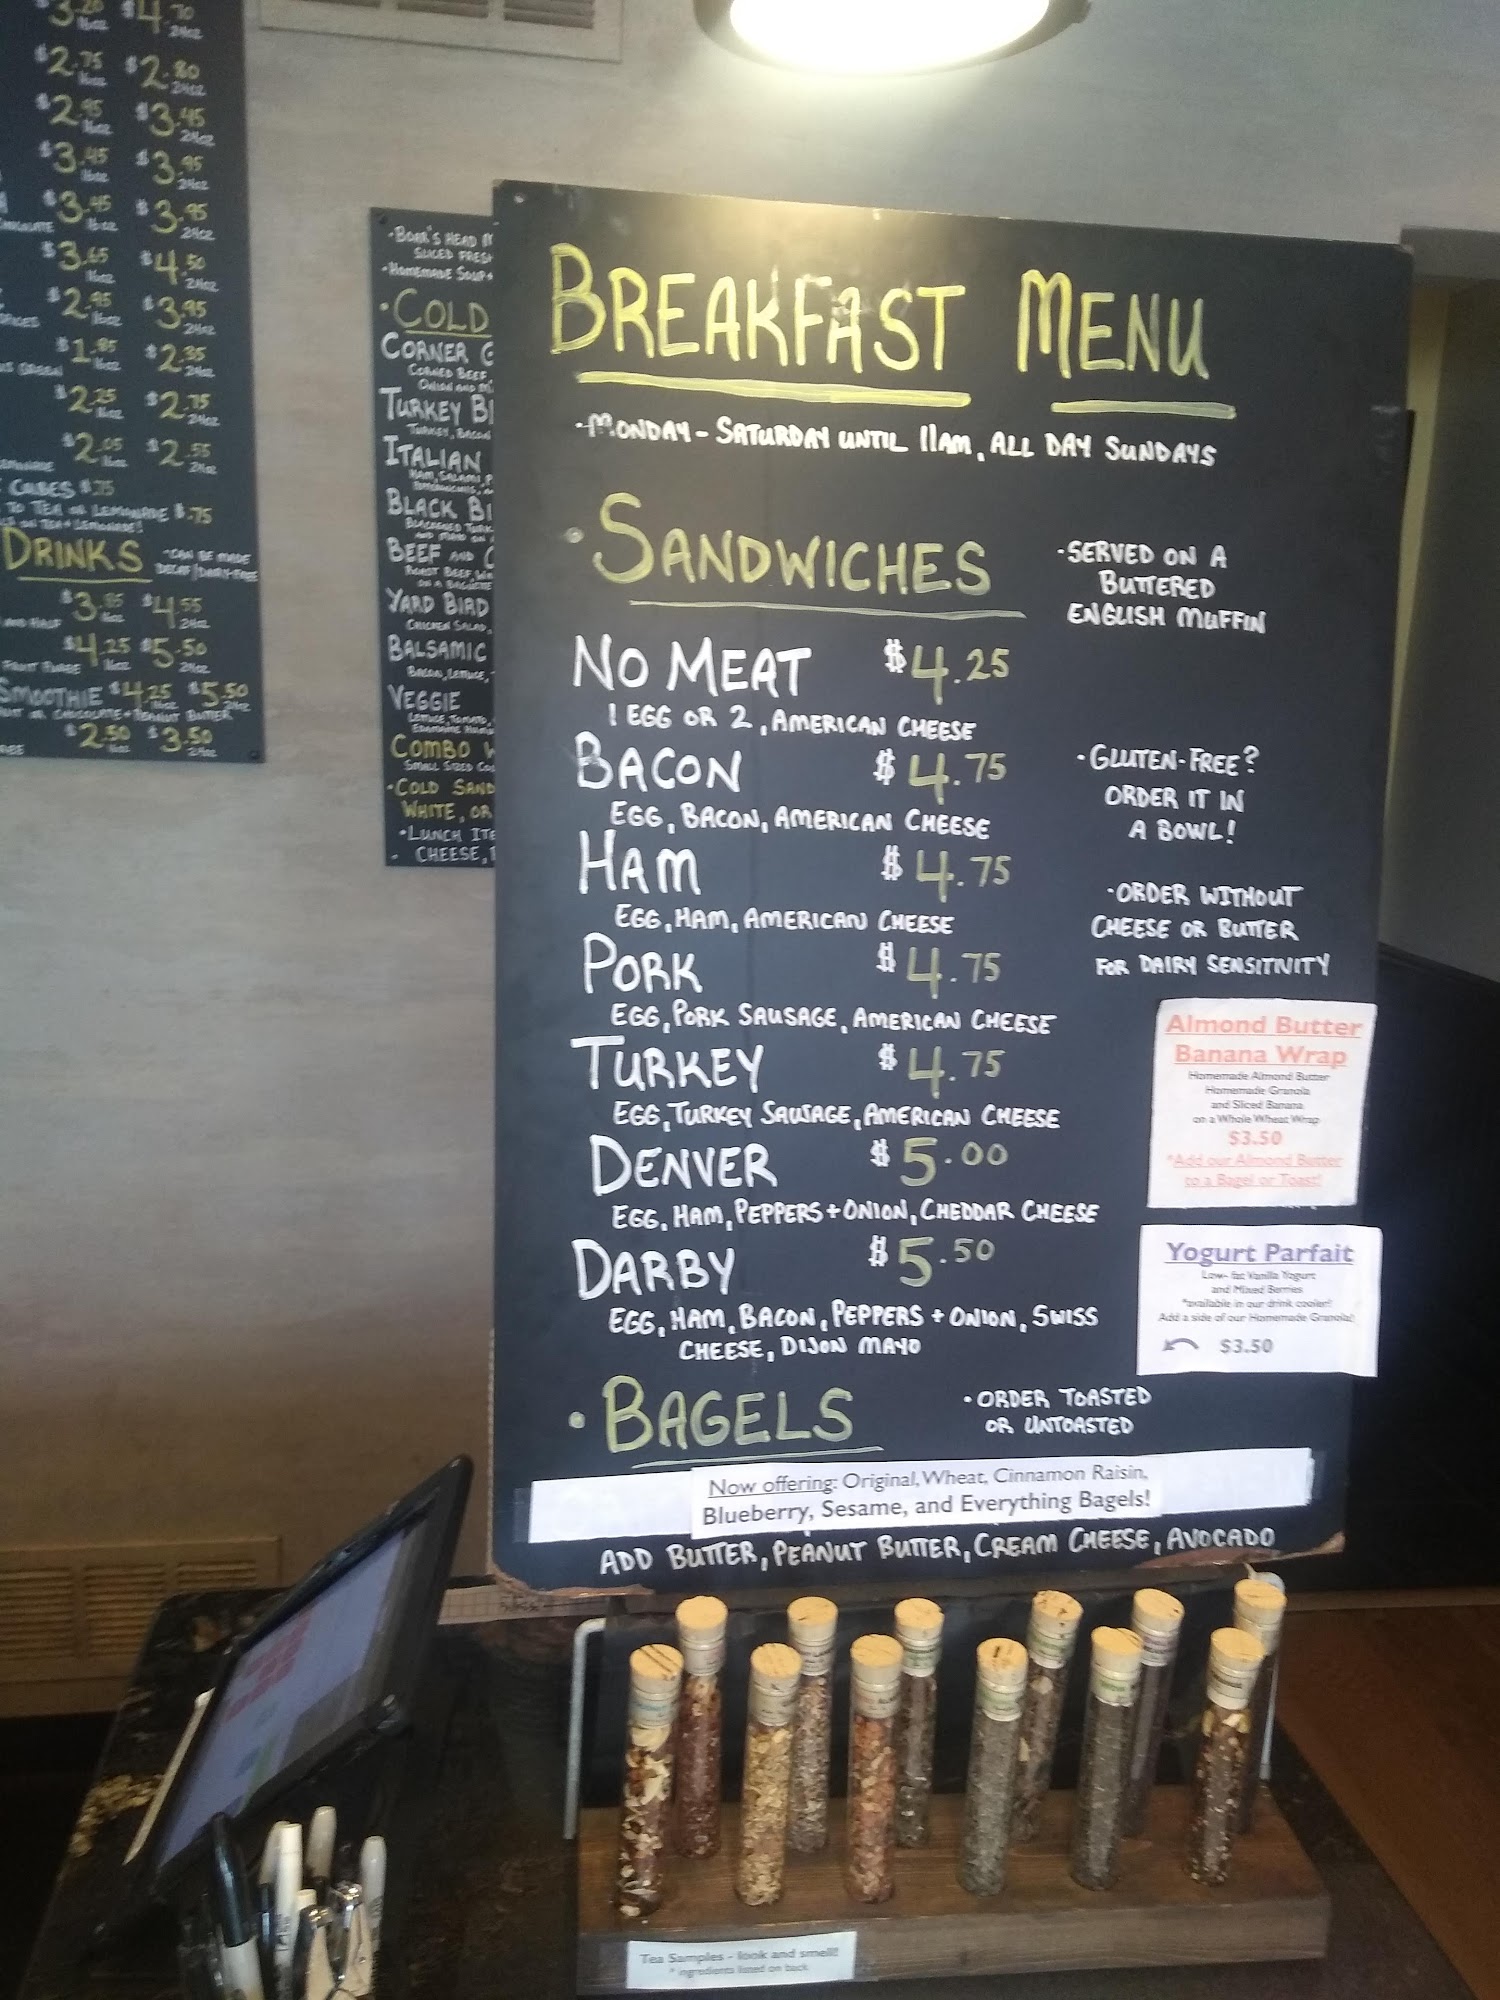 $3.20 $4.70
16oz 24oz
$2.75 $2.80
16oz 24oz
$2.95 $3.45
16oz 24oz
$3.45 $3.95
16oz 24oz
$3.45 $3.95
CHOCOLATE 16oz 24oz
$3.65 $4.50
16oz 24oz
$2.95 $3.95
16oz 24oz
$1.85 $2.35
16oz 24oz
$2.25 $2.75
16oz 24oz
$2.05 $2.55
16oz 24oz
CUBES $.75
TO TEA OR LEMONADE $.75
TEA + LEMONADE!
DRINKS
*CAN BE MADE
DECAF/DAIRY-FREE
$3.85 $4.55
AND HALF 16oz 24oz
$4.25 $5.50
FRUIT PUREE 16oz 24oz
SMOOTHIE $4.25 $5.50
OR CHOCOLATE + PEANUT BUTTER
$2.50 $3.50
16oz 24oz
• BOAR'S HEAD
SLICED FRESH
• HOMEMADE SOUP
• COLD
CORNER
CORNED BEEF,
ONION AND
TURKEY
TURKEY, BACON
ITALIAN
HAM, SALAMI,
BLACK
BEEF AND
ROAST BEEF,
ON A BAGUETTE
YARD BIRD
CHICKEN SALAD,
BALSAMIC
BACON, LETTUCE,
VEGGIE
LETTUCE, TOMATO,
COMBO
SMALL SIZED
• COLD
WHITE, OR
• LUNCH
CHEESE,
BREAKFAST MENU
• MONDAY - SATURDAY UNTIL 11AM, ALL DAY SUNDAYS
• SANDWICHES
• SERVED ON A
BUTTERED
ENGLISH MUFFIN
NO MEAT $4.25
1 EGG OR 2, AMERICAN CHEESE
BACON $4.75
EGG, BACON, AMERICAN CHEESE
HAM $4.75
EGG, HAM, AMERICAN CHEESE
PORK $4.75
EGG, PORK SAUSAGE, AMERICAN CHEESE
TURKEY $4.75
EGG, TURKEY SAUSAGE, AMERICAN CHEESE
DENVER $5.00
EGG, HAM, PEPPERS + ONION, CHEDDAR CHEESE
DARBY $5.50
EGG, HAM, BACON, PEPPERS + ONION, SWISS
CHEESE, DIJON MAYO
• GLUTEN-FREE?
ORDER IT IN
A BOWL!
• ORDER WITHOUT
CHEESE OR BUTTER
FOR DAIRY SENSITIVITY
Almond Butter
Banana Wrap
Homemade Almond Butter
Homemade Granola
and Sliced Banana
on a Whole Wheat Wrap
$3.50
*Add our Almond Butter
to a Bagel or Toast!
Yogurt Parfait
Low-fat Vanilla Yogurt
and Mixed Berries
*available in our drink cooler!
Add a side of our Homemade Granola!
$3.50
• BAGELS
• ORDER TOASTED
OR UNTOASTED
Now offering: Original, Wheat, Cinnamon Raisin,
Blueberry, Sesame, and Everything Bagels!
ADD BUTTER, PEANUT BUTTER, CREAM CHEESE, AVOCADO
Tea Samples - look and smell!
* ingredients listed on back